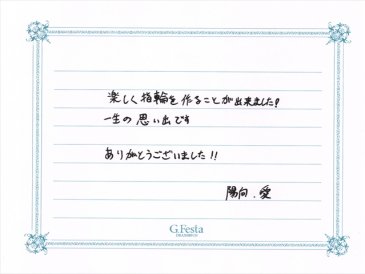 楽しく指輪を作ることが出来ました!
一生の思い出です
ありがとうございました!!
陽向.愛
G.Festa